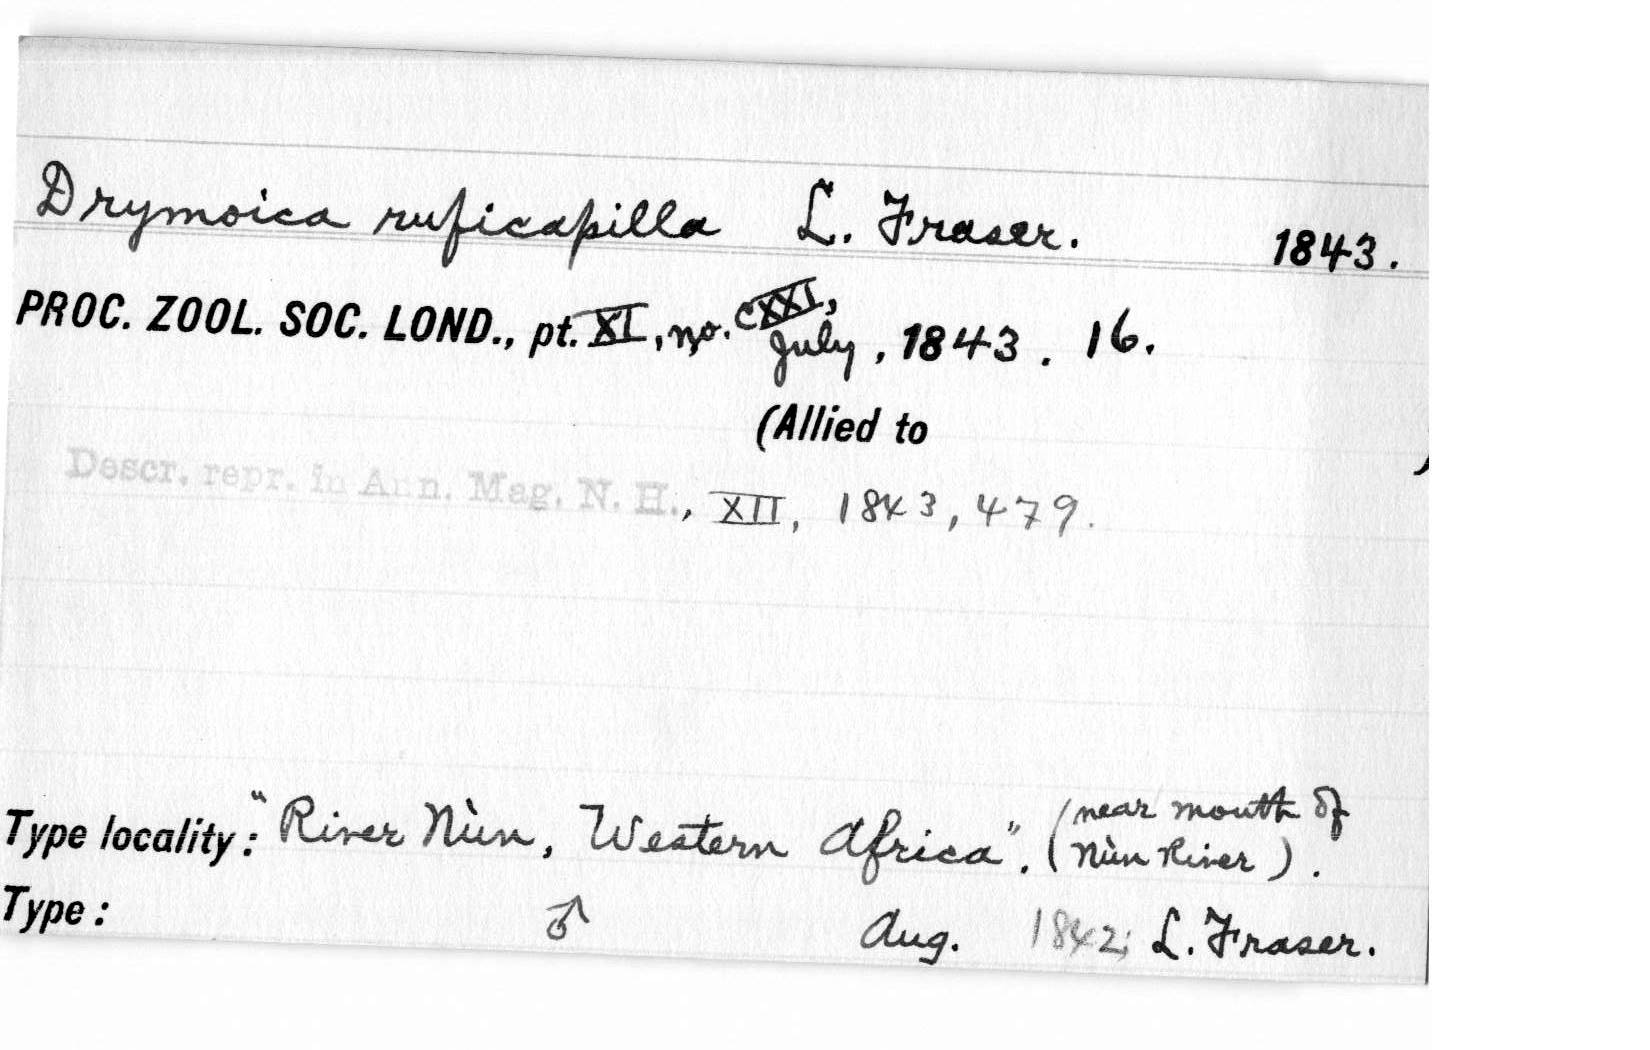 Drymoica ruficapilla L. Fraser. 1843.
PROC. ZOOL. SOC. LOND., pt. XI, no. CXXI, July, 1843. 16.
(Allied to )
Descr. repr. in Ann. Mag. N. H., XII, 1843, 479.
Type locality: "River Nùn, Western Africa". (near mouth of Nùn River).
Type: ♂ Aug. 1842; L. Fraser.